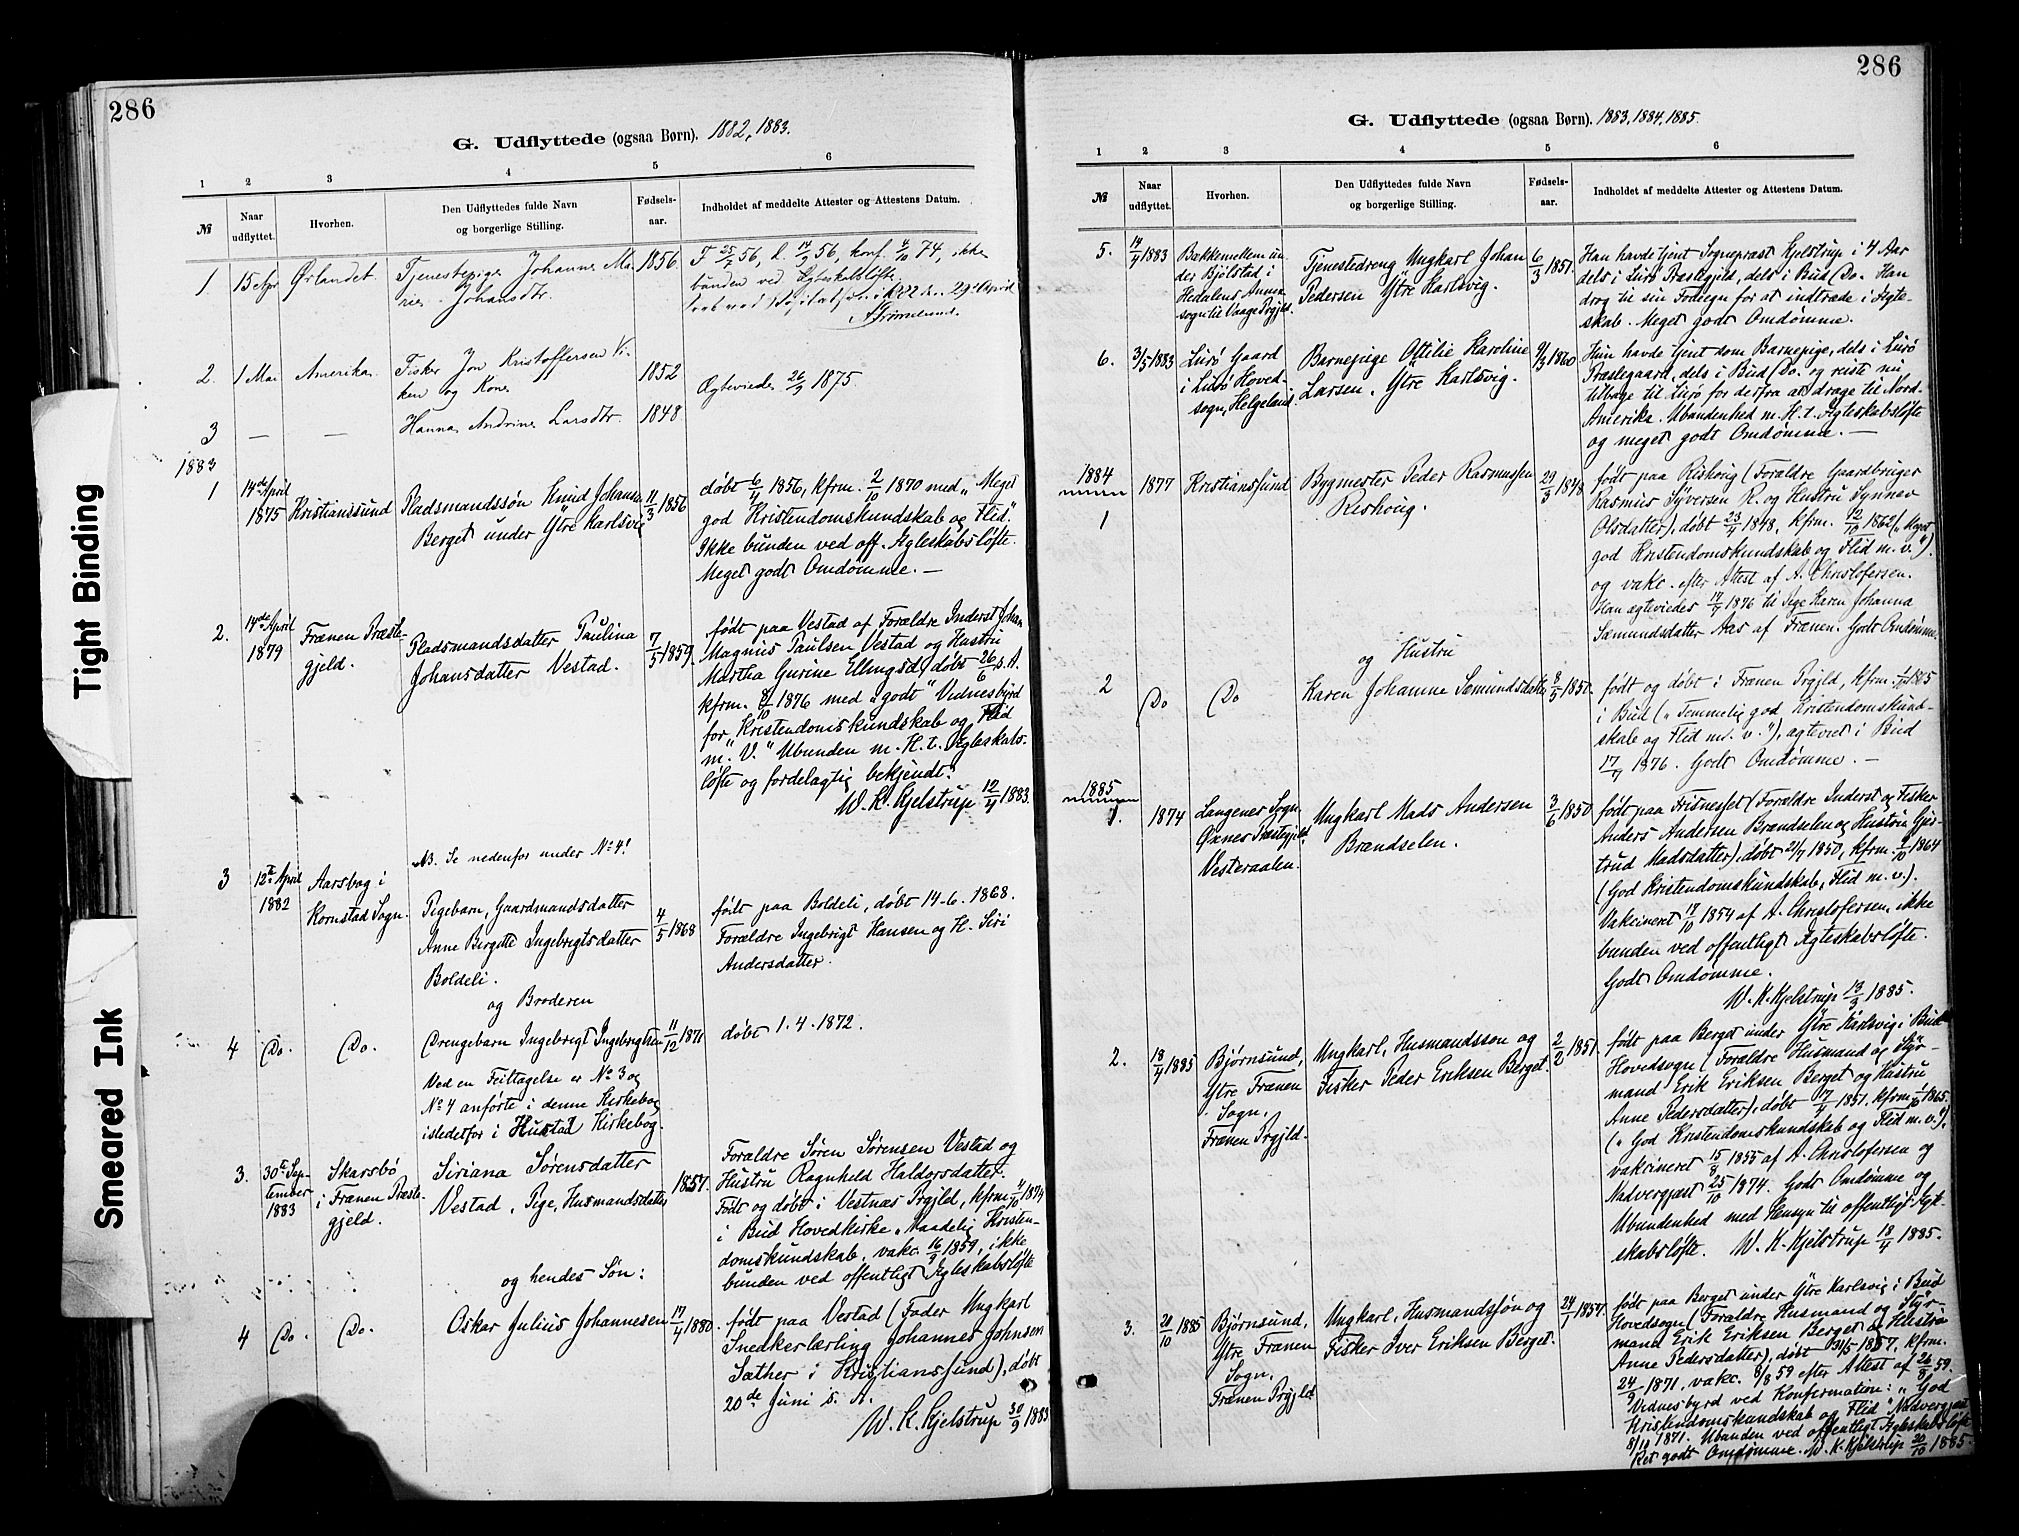 286
G. Udflyttede (ogsaa Børn). 1882, 1883.
1 2 3 4 5 6
№ Naar udflyttet. Hvorhen. Den Udflyttedes fulde Navn og borgerlige Stilling. Fødselsaar. Indholdet af meddelte Attester og Attestens Datum.
1. 15 Apr Ørlandet Tjenestepige Johanne Ma-
rie Johansdtr. 1856
F 25/7 56, d. 14/9 56, konf. 4/10 74, ikke
bunden ved Egteskabsløfte
29de April
2. 1 Mai Amerika Fisker Jon Kristoffersen Vi-
ken og Kone 1852
Ægteviede 26/9 1875.
3 — — Hanna Andrine Larsdtr. 1848
1883
1 14de April
1875 Kristianssund Pladsmandssøn Knud Johansen
Berget under Ytre Karlsvig 11/3 1856
døbt 6/4 1856, kfrm. 2/10 1870 med „Meget
god Kristendomskundskab og Flid".
Ikke bunden ved off. Ægteskabsløfte.
Meget godt Omdømme. —
2. 14de April
1879 Frænen Præste-
gjeld. Pladsmandsdatter Paulina
Johansdatter Vestad. 7/5 1859.
født paa Vestad af Forældre Inderst Johan
Magnus Paulsen Vestad og Hustru
Martha Gurine Ellingsd, døbt 26/6 s. A.
kfrm. 8/10 1876 med „godt" Vidnesbyrd
for „Kristendomskundskab og Flid
m. V." Ubunden m. H. t. Ægteskabs-
løfte og fordelagtig bekjendt.
W. K. Kjelstrup 12/4 1883.
NB. Se nedenfor under No 4!
3 12te April
1882 Aarsbog i
Kornstad Sogn. Pigebarn, Gaardmandsdatter
Anne Bergitte Ingebrigtsdatter
Boldeli. 4/5 1868
født paa Boldeli, døbt 14-6. 1868.
Forældre Ingebrigt Hansen og H. Siri
Andersdatter.
og Broderen
4 Do. Do. Drengebarn Ingebrigt Ingebrigtsen 11/12 1871 døbt 1. 4. 1872.
Ved en Feiltagelse er No 3 og
No 4 anførte i denne Kirkebog
istedetfor i Hustad Kirkebog.
3. 30te Sep-
tember
1883 Skarsbø
i Frænen Præste-
gjeld. Siriana Sørensdatter
Vestad, Pige, Husmandsdatter 1857.
Forældre Søren Sørensen Vestad og
Hustru Ragnhild Haldorsdatter.
Født og døbt i Vestnæs Prgjld, kfrm. 4/10 1874
i Bud Hovedkirke „Maadelig Kristen-
domskundskab, vakc. 16/9 1859, ikke
bunden ved offentligt Ægteskabsløfte
og hendes Søn:
4 Do. Do. Oskar Julius Johannesen 17/4 1880.
født paa Vestad (Fader Ungkarl
Snedkerlærling Johannes Johnsen
Sæther i Kristianssund), døbt
20de Juni s. A.
W. K. Kjelstrup 30/9 1883
286
G. Udflyttede (ogsaa Børn). 1883, 1884, 1885.
1 2 3 4 5 6
№ Naar udflyttet. Hvorhen. Den Udflyttedes fulde Navn og borgerlige Stilling. Fødselsaar. Indholdet af meddelte Attester og Attestens Datum.
5. 14/4 1883 Bækkemellem un-
der Bjølstad i
Hedalens Annex-
sogn til Vaage Prgjld. Tjenestedreng Ungkarl Johan
Pedersen Ytre Karlsvig. 6/3 1851.
Han havde tjent Sognepræst Kjelstrup i 4 Aar
dels i Lurø Præstegjld, dels i Bud (Do. Han
drog til sin Fødeegn for at indtræde i Ægte-
skab. Meget godt Omdømme.
6. 3/5 1883 Lurø Gaard
i Lurø Hoved-
sogn, Helgeland. Barnepige Ottilie Karoline
Larsen, Ytre Karlsvig. 9/3 1860
Hun havde tjent som Barnepige, dels i Lurø
Præstegaard, dels i Bud (Do. og reiste nu
tilbage til Lurø for derfra at drage til Nord-
Amerika. Ubundenhed m. H. t. Ægteskabsløfte
og meget godt Omdømme. —
1884
1 1877 Kristianssund Bygmester Peder Rasmussen
Rishoug. 29/3 1848
født paa Rishoug (Forældre Gaardbruger
Rasmus Syversen R. og Hustru Synnev
Olsdatter), døbt 23/4 1848, kfrm. 12/10 1862 („Meget
god Kristendomskundskab og Flid m. v.").
og vakc. efter Attest af A. Christofersen.
Han ægteviedes 17/4 1876 til Pige Karen Johanna
Sæmundsdatter Aas af Frænen. Godt Omdømme.
og Hustru
2 Do Do Karen Johanne Sæmundsdatter 8/3 1850.
født og døbt i Frænen Prgjld, kfrm. 1/10 1865
i Bud („Temmelig god Kristendomskund-
skab og Flid m. v."), ægteviet i Bud
17/4 1876. Godt Omdømme. —
1885
1. 1874 Langenes Sogn,
Øxnes Præstegjeld.
Vesteraalen. Ungkarl Mads Andersen
Brændselen. 3/6 1850
født paa Frisnesset (Forældre Inderst og Fisker
Anders Andersen Brændselen og Hustru Gjer-
trud Madsdatter), døbt 21/7 1850, kfrm. 2/10 1864
(God Kristendomskundskab, Flid m. v.).
Vakcineret 18/10 1854 af A. Christofersen, ikke
bunden ved offentligt Ægteskabsløfte.
Godt Omdømme.
W. K. Kjelstrup 13/3 1885.
2. 18/4 1885 Bjørnsund,
Ytre Frænen
Sogn,
Frænen Prgjld. Ungkarl, Husmandssøn og
Fisker Peder Eriksen Berget. 2/2 1851.
født paa Berget under Ytre Karlsvig i Bud
Hovedsogn (Forældre Husmand og Styr-
mand Erik Eriksen Berget og Hustru
Anne Pedersdatter), døbt 17/4 1851, kfrm. 1/10 1865.
(„God Kristendomskundskab og Flid m. v."),
vakcineret 15/8 1855 af A. Christofersen og
Nadvergjæst 25/10 1874. Godt Omdømme og
Ubundenhed med Hensyn til offentligt Ægt-
skabsløfte. W. K. Kjelstrup 18/4 1885.
3. 20/10 1885 Bjørnsund,
Ytre Frænen
Sogn,
Frænen Prgjld Ungkarl, Husmandssøn og
Fisker Iver Eriksen Berget. 24/1 1857.
født paa Berget under Ytre Karlsvig i Bud
Hovedsogn (Forældre Husmand og Styr-
mand Erik Eriksen Berget og Hustru
Anne Pedersdatter), døbt 31/5 1857, kfrm.
24/9 1871, vakc. 8/8 59 efter Attest af 26/8 59.
Vidnesbyrd ved Konfirmation: „God
Kristendomskundskab og Flid" Nadvergjæst
8/10 1871. Ubunden ved offentligt Ægteskabsløfte
Ret godt Omdømme. W. K. Kjelstrup 20/10 1885.
Tight Binding
Smeared Ink